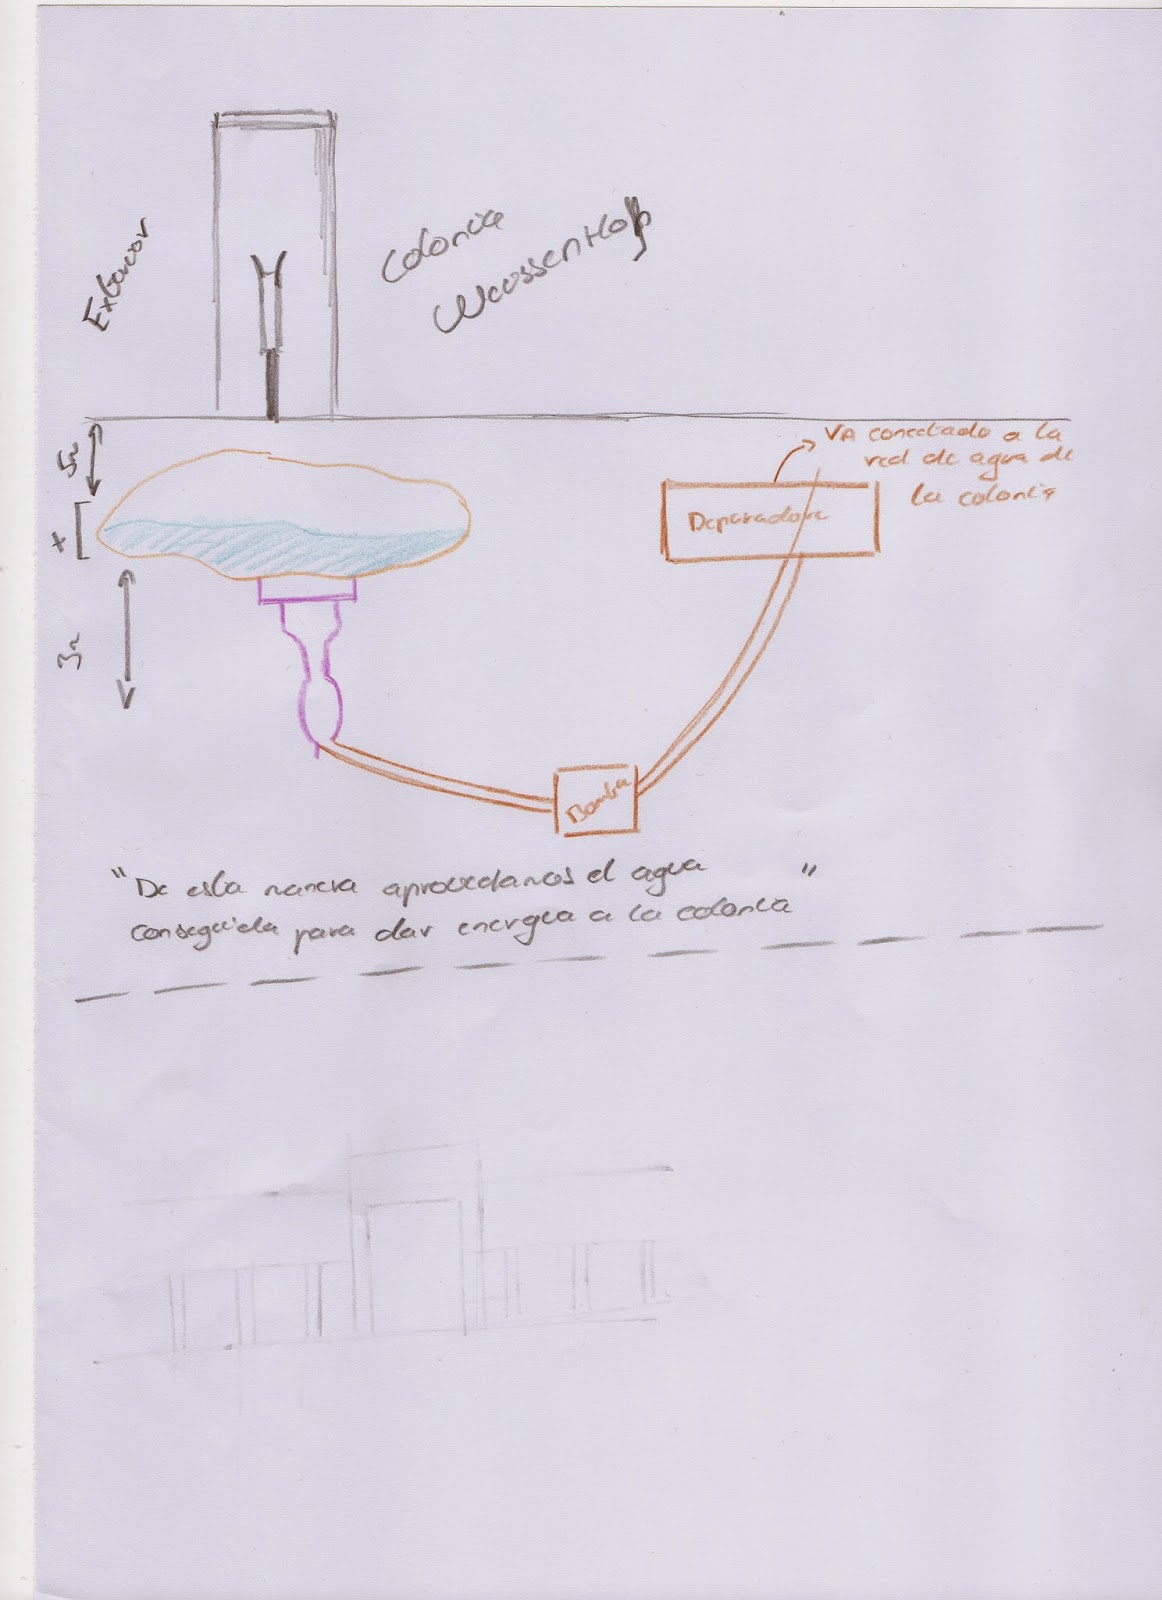 Exterior
Colonia
Weissenhof
VA conectado a la
red de agua de
la colonia
5m
Depuradora
x
3m
Bomba
"De esta manera aprovechamos el agua
conseguida para dar energia a la colonia"